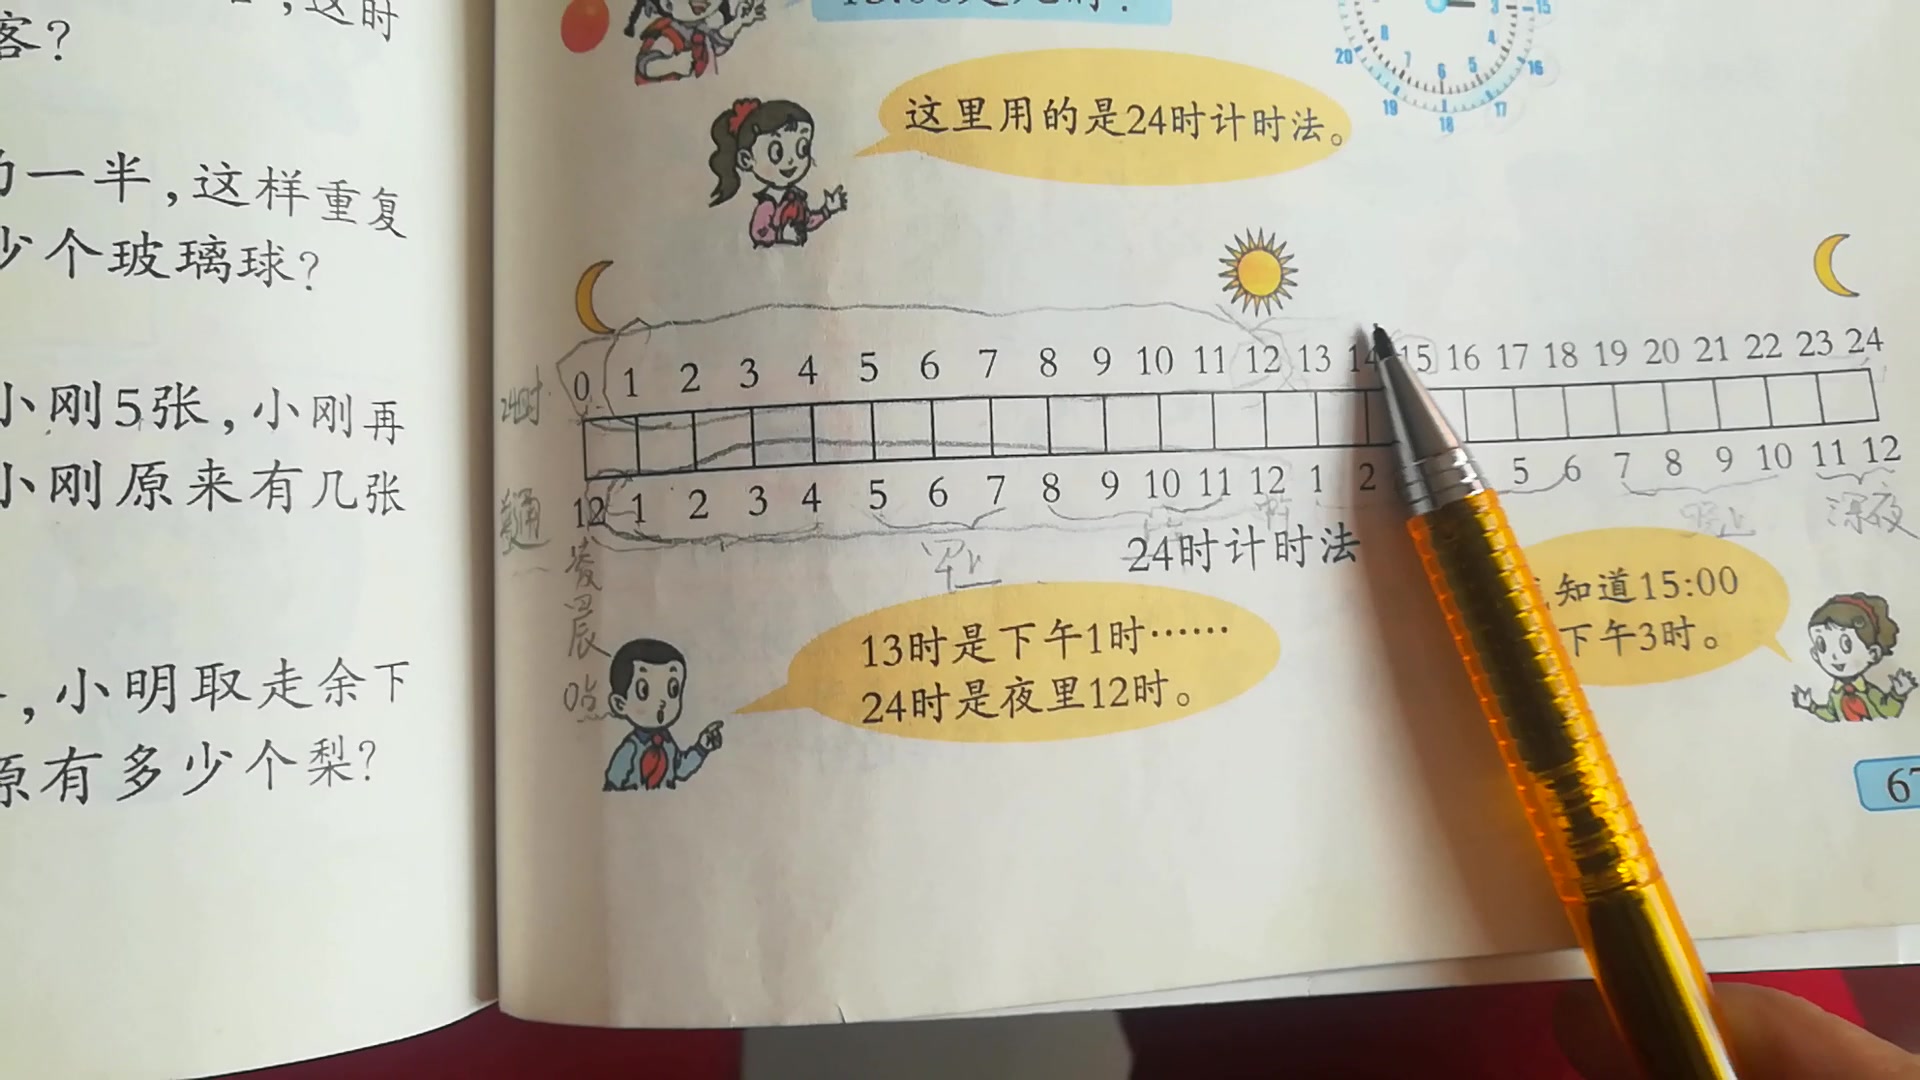 这时
客?
一半,这样重复
少个玻璃球?
小刚5张,小刚再
小刚原来有几张
,小明取走余下
原有多少个梨?
15
16
17
18
19
20
3
4
5
6
7
8
这里用的是24时计时法。
24时
0 1 2 3 4 5 6 7 8 9 10 11 12 13 14 15 16 17 18 19 20 21 22 23 24
普通
12 1 2 3 4 5 6 7 8 9 10 11 12 1 2 5 6 7 8 9 10 11 12
凌晨
0点
早上
深夜
24时计时法
13时是下午1时……
24时是夜里12时。
知道15:00
下午3时。
67